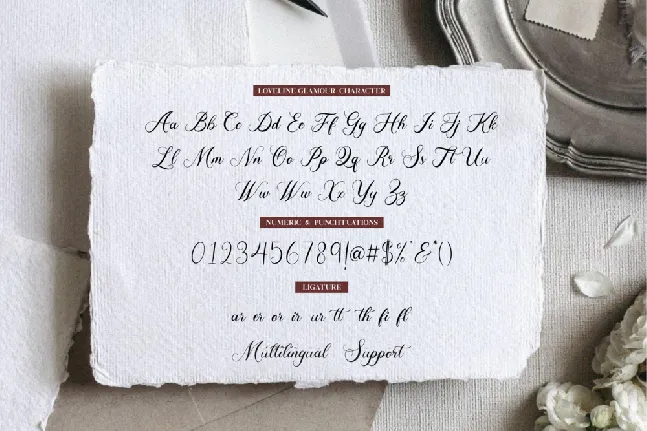 LOVELINE GLAMOUR CHARACTER
Aa Bb Cc Dd Ee Ff Gg Hh Ii Jj Kk
Ll Mm Nn Oo Pp Qq Rr Ss Tt Uu
Ww Ww Xx Yy Zz
NUMERIC & PUNCHTUATIONS
0123456789!@#$%^&*()
LIGATURE
ar er or ir ur tt th fi fl
Multilingual Support